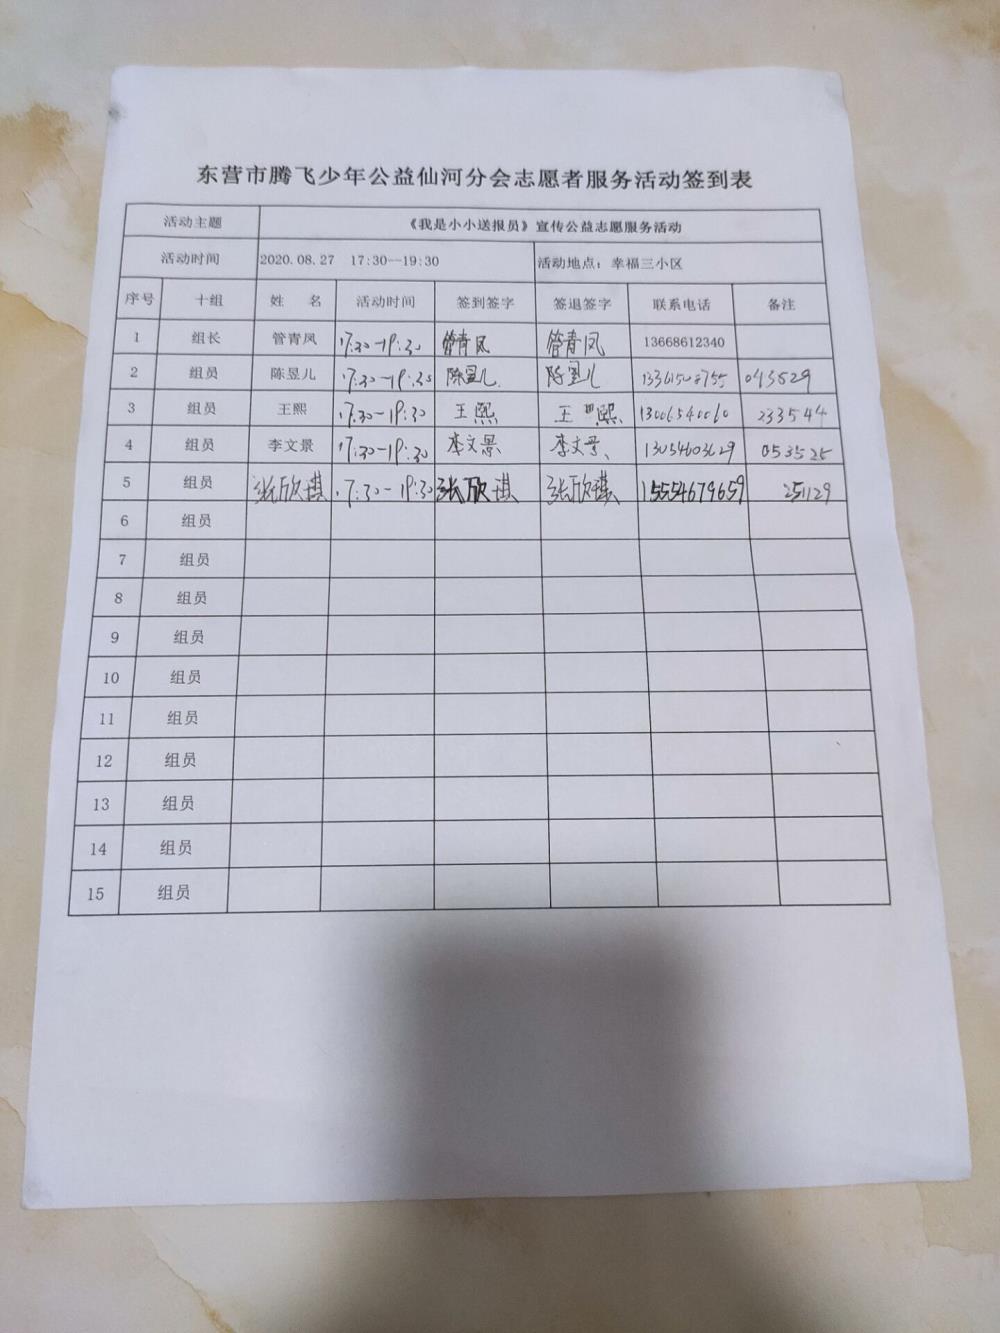 东营市腾飞少年公益仙河分会志愿者服务活动签到表
活动主题 《我是小小送报员》宣传公益志愿服务活动
活动时间 2020.08.27 17:30--19:30 活动地点：幸福三小区
序号 十组 姓 名 活动时间 签到签字 签退签字 联系电话 备注
1 组长 管青凤 17:30-19:30 管青凤 管青凤 13668612340
2 组员 陈昱儿 17:30-19:30 陈昱儿 陈昱儿 043529
3 组员 王熙 17:30-19:30 王熙 王熙 13006540060 233544
4 组员 李文景 17:30-19:30 李文景 李文景 13054603629 053525
5 组员 张欣琪 17:30-19:30 张欣琪 张欣琪 15554679659 251129
6 组员
7 组员
8 组员
9 组员
10 组员
11 组员
12 组员
13 组员
14 组员
15 组员